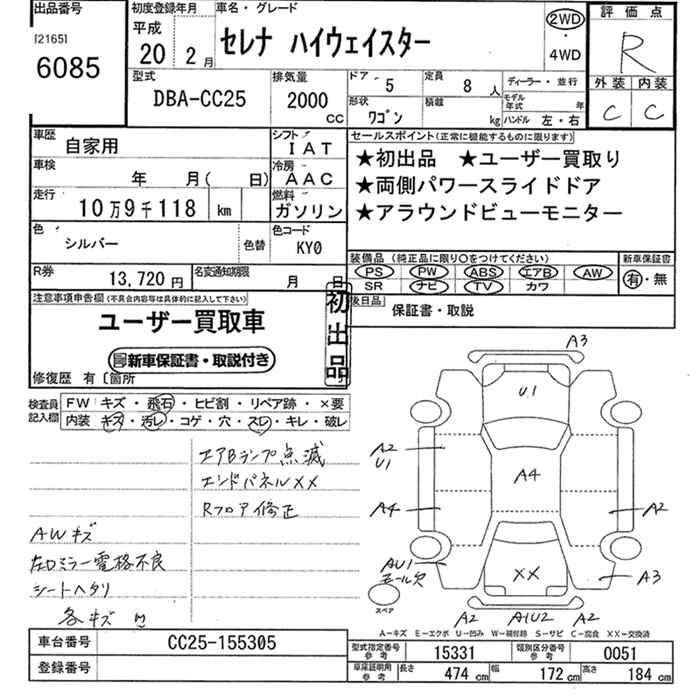 出品番号
[2165]
6085
初度登録年月
平成
20 2月
車名・グレード
セレナ ハイウェイスター
2WD
・
4WD
評価点
R
外装 内装
C C
型式
DBA-CC25
排気量
2000
CC
ドア
5
定員
8人
ディーラー・並行
形状
ワゴン
積載
kg
モデル年式 年
ハンドル 左・右
車歴
自家用
シフト
IAT
車検
年 月( 日)
冷房
AAC
走行
10万9千118 km
燃料
ガソリン
色
シルバー
色替
色コード
KY0
R券
13,720円
名変通知期限
月 日
セールスポイント(正常に機能するものに限ります)
★初出品 ★ユーザー買取り
★両側パワースライドドア
★アラウンドビューモニター
装備品(純正品に限り○をつけてください)
PS PW ABS エアB AW
SR ナビ TV カワ
新車保証書
有・無
後日品
保証書・取説
注意事項申告欄(不具合内容等は具体的に記入して下さい)
ユーザー買取車
新車保証書・取説付き
初出品
修復歴 有 [箇所
検査員記入欄
FW キズ・飛石・ヒビ割・リペア跡・×要
内装 キズ・汚レ・コゲ・穴・スレ・キレ・破レ
エアBランプ点滅
エンドパネルXX
Rフロア修正
AWキズ
左ドミラー電格不良
シートヘタリ
各キズ凹
A3
U1
A2
U1
A4
A4
A2
AU1
モール欠
XX
A3
スペア
A2
A1U2
A2
A=キズ E=エクボ U=凹み W=補修跡 S=サビ C=腐食 XX=交換済
車台番号
CC25-155305
登録番号
型式指定番号
参考
15331
類別区分番号
参考
0051
車庫証明用
参考
長さ
474 cm
幅
172 cm
高さ
184 cm